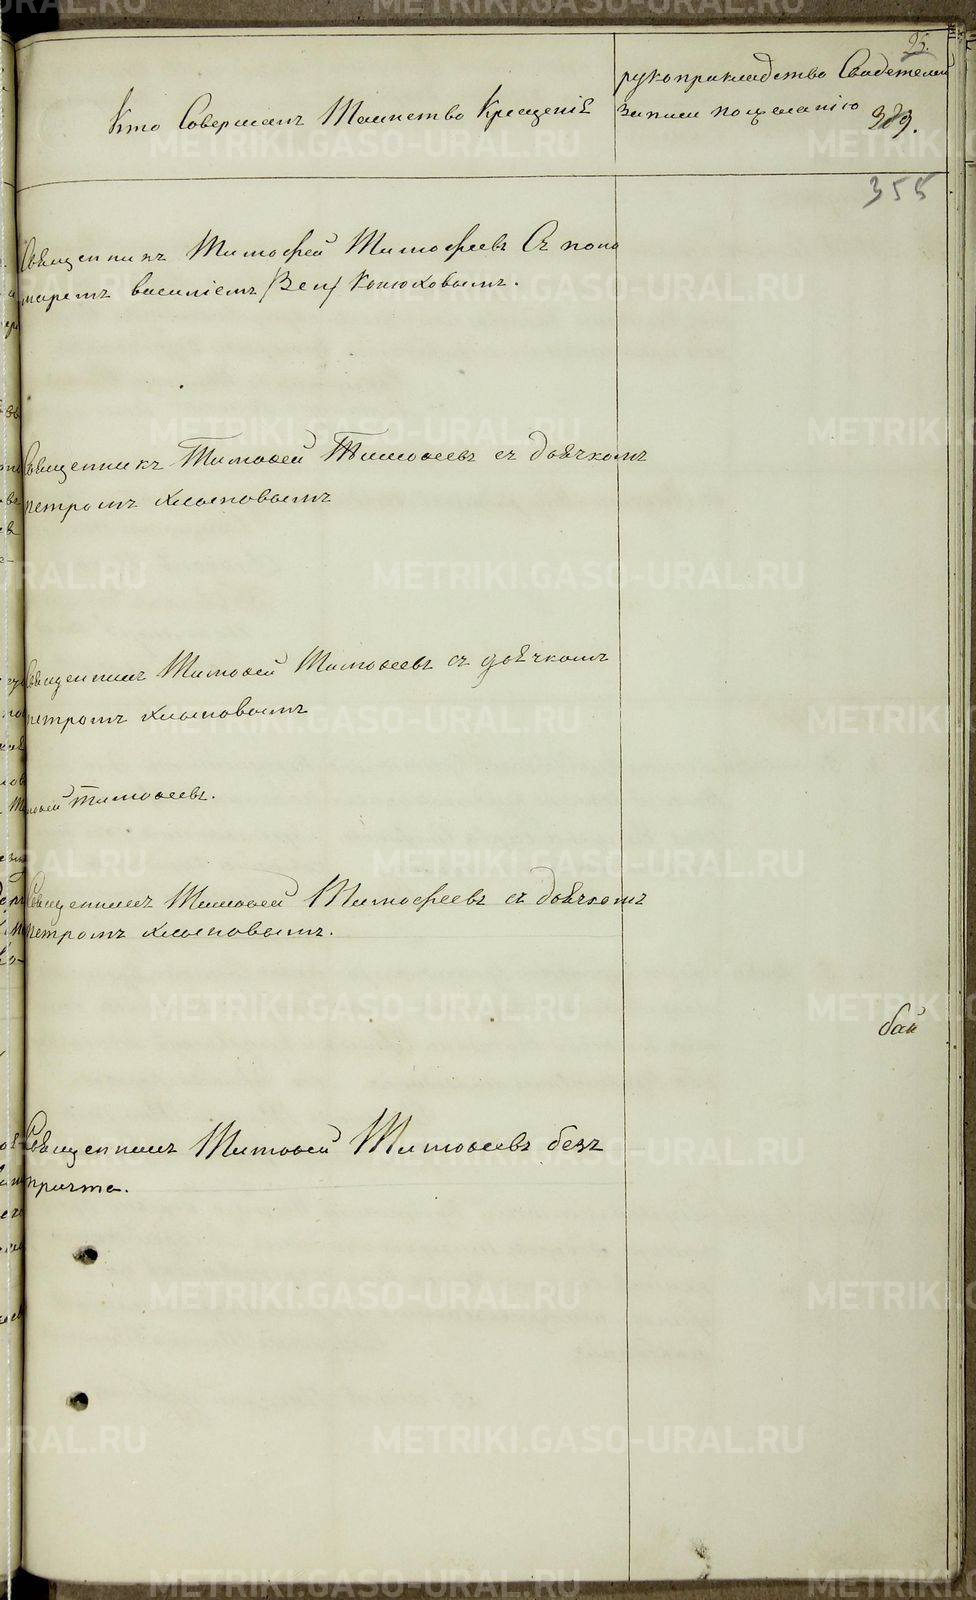 95.
Кто Совершалъ Таинство Крещенiя
рукоприкладство Свидетелей
записи пожеланiю
389.
355
Священникъ Тимофей Тимофеевъ Съ поно
маремъ василiемъ Конюховымъ.
Священникъ Тимоѳей Тимоѳеевъ съ дьячкомъ
петромъ хлыновымъ
Священникъ Тимоѳей Тимоѳеевъ съ дьячкомъ
петромъ хлыновымъ
Тимоѳей Тимоѳеевъ.
Священникъ Тимоѳей Тимофеевъ съ дьячкомъ
петромъ хлыновымъ.
бай
Священникъ Тимоѳей Тимоѳеевъ безъ
причта.
METRIKI.GASO-URAL.RU